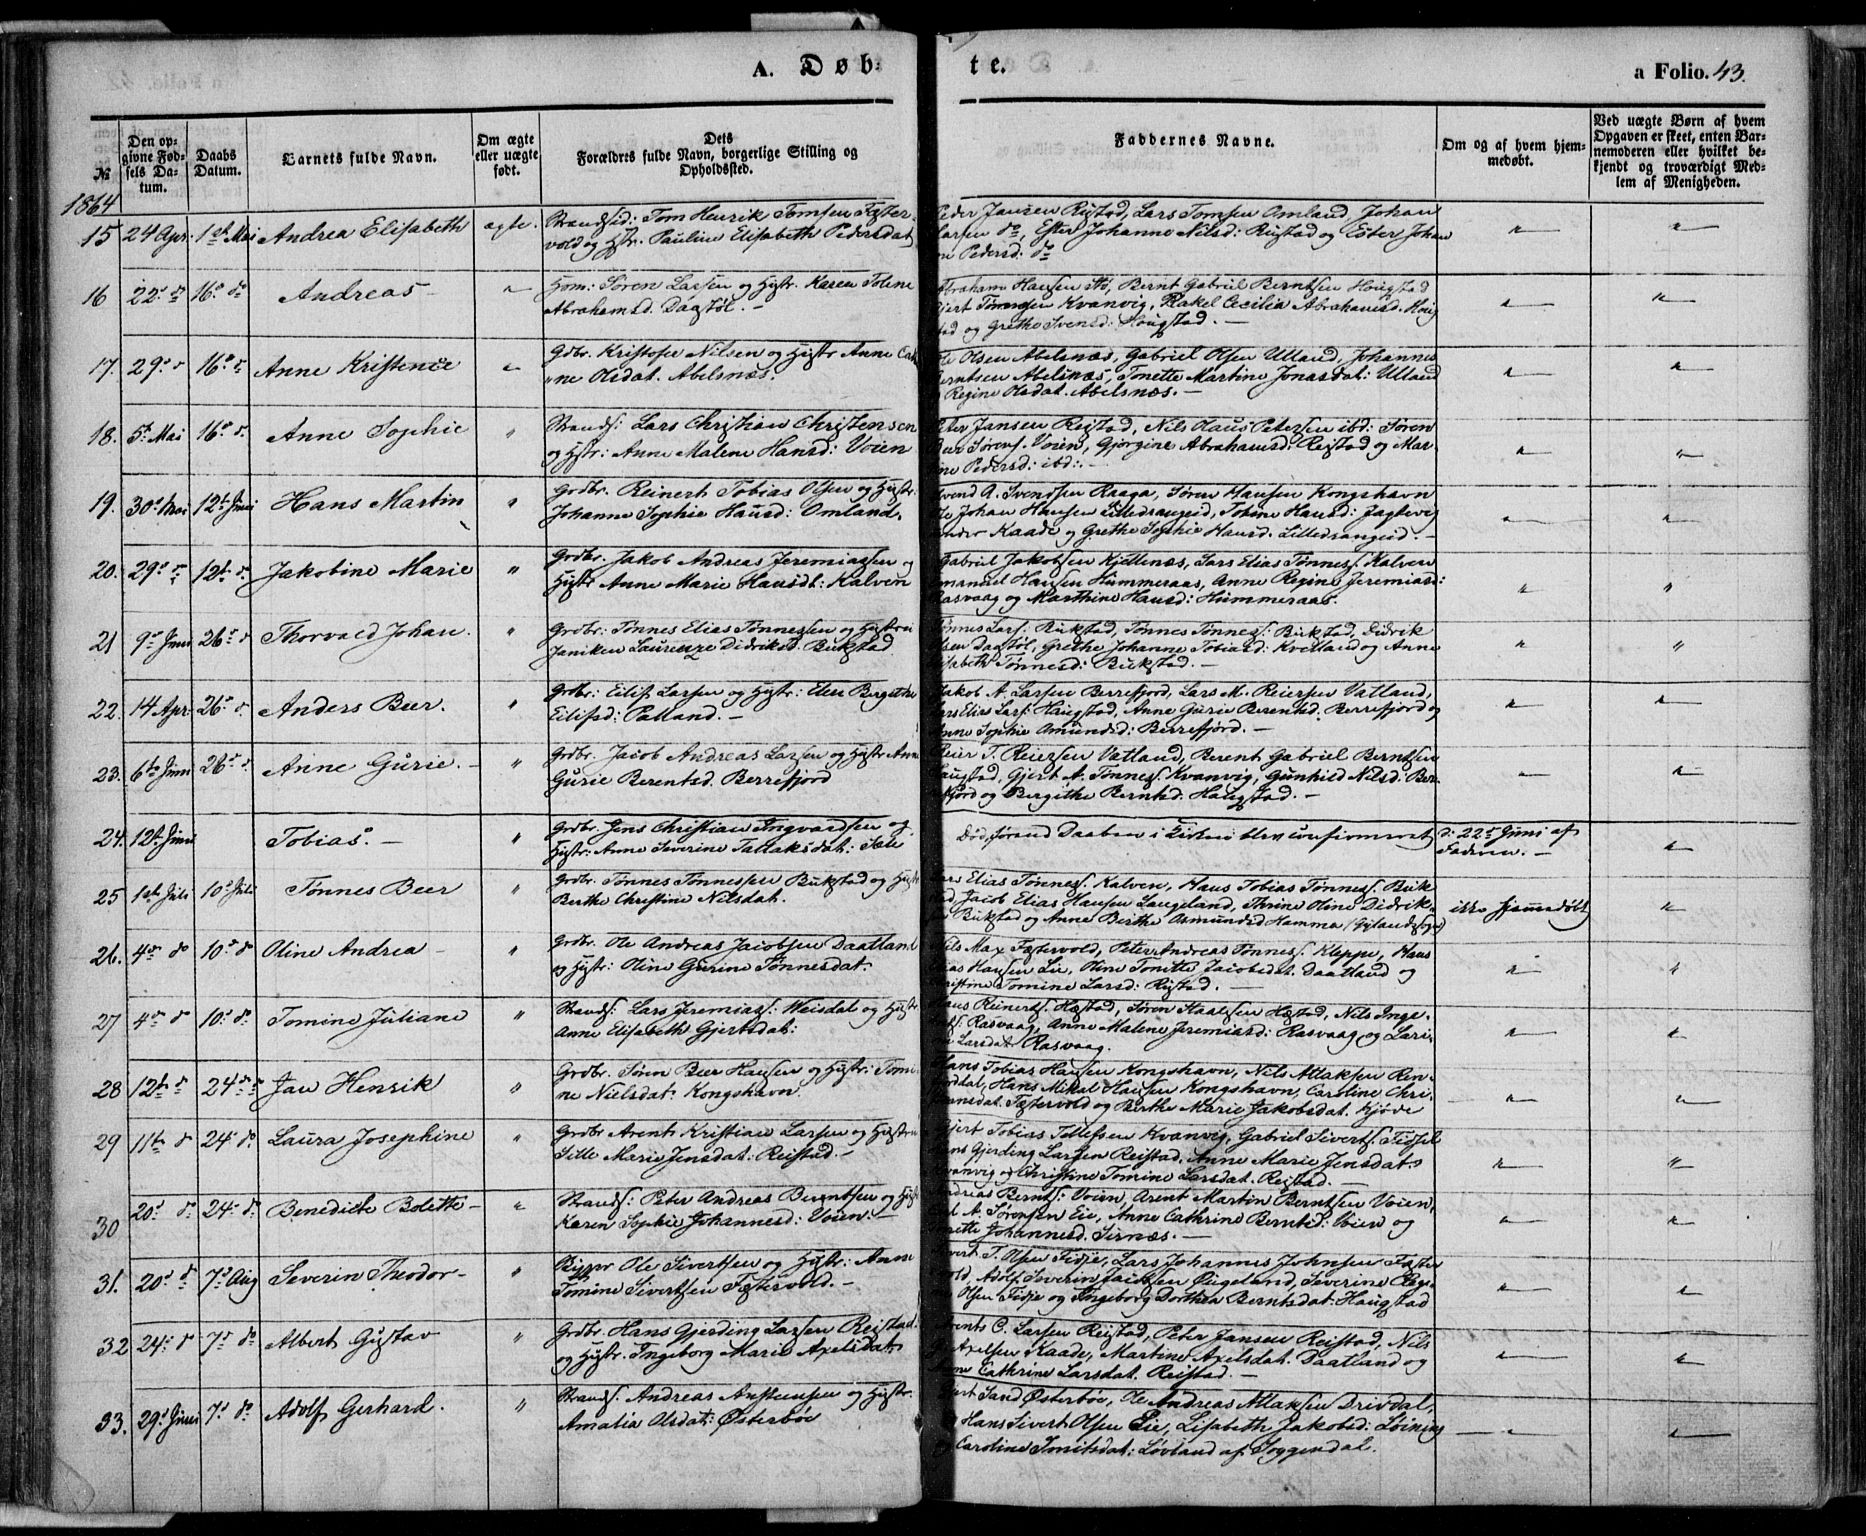 A. Døb-
te.
a Folio. 43.
№
Den op-
givne Fød-
sels Da-
tum.
Daabs
Datum.
Barnets fulde Navn.
Om ægte
eller uægte
født.
Dets
Forældres fulde Navn, borgerlige Stilling og
Opholdssted.
Faddernes Navne.
Om og af hvem hjem-
medøbt.
Ved uægte Børn af hvem
Opgaven er skeet, enten Bar-
nemoderen eller hvilket be-
kjendt og troværdigt Med-
lem af Menigheden.
1864
15 24 Apr. 1st Mai Andrea Elisabeth ægte.
Strandsid: Tom Henrik Tomsen Fæster-
vold og Hstr: Pauline Elisabeth Pedersdat
Peder Jansen Reistad, Lars Tomsen Omland, Johan
Larsen do, Ester Johanne Nilsd: Reistad og Ester Johan
ne Pedersd: do
16 22 do 16 do Andreas
Søren Larsen og Hustr. Karen Tolene
Abrahamsd. Dagstøl.
Abraham Hansen, Bernt Gabriel Berntsen Hougstad
Gjert Tønnesen Kvanvig, Rakel Cecilia Abrahamsd. Houg
stad og Grethe Svensd: Hougstad.
17. 29 do 16 do Anne Kristence
Gdbr. Kristofer Nilsen og Hustr Anne Cath
rine Olsdat. Abelsnæs.
Ole Olsen Abelsnæs, Gabriel Olsen Ulland, Johannes
Berntsen Abelsnæs, Tonette Martine Jonasdat: Ulland
Regine Olsdat. Abelsnæs.
18. 5t Mai 16 do Anne Sophie "
Strands: Lars Christian Christensen
og Hstr: Anne Malene Hansd: Voien
Peter Jansen Reistad, Nils Haus Petersen ibd: Søren
Beer Sørens. Voien, Gjørgine Abrahamsd: Reistad og Mar
ine Pedersd: ibd:
19. 30 Mai 12t Juni Hans Martin "
Grdbr. Reinert Tobias Olsen og Hustr:
Johanne Sophie Hansd: Omland.
Svend A. Svendsen Raaga, Søren Hansen Kongshavn
Johan Hansen Lilledrangeid, Tobine Hansd: Jagtevig
Kaade og Grethe Sophie Hansd. Lilledrangeid.
20. 29 12t d. Jakobine Marie "
Grdbr. Jakob Andreas Jeremiassen og
Hustr Anne Marie Hansdt: Kalven
Gabriel Jakobsen Kjellenæs, Lars Elias Tønness. Kalven
Emanuel Hansen Hummeraas, Anne Regine Jeremiasd:
Rasvaag og Marthine Hansd: Hummeraas.
21 9 Juni 26 d Thorvald Johan. "
Grdbr: Tønnes Elias Tønnessen og Hustru
Janiken Laurenze Didriksd. Bukstad
Tønnes Lars. Bukstad, Tønnes Tønness. Bukstad, Didrik
Olsen Dagstøl, Grethe Johanne Tobiasd: Kvelland og Anne
Elisabeth Tønnesd: Bukstad.
22. 14 Apr. 26 d. Anders Beer. "
Grdbr: Eilif Larsen og Hstr: Elen Bergithe
Eilifsd: Øatland.
Jakob A. Larsen Berrefjord, Lars M. Reiersen Vatland,
Lars Elias Lars. Haugstad, Anne Gurie Berentsd. Berrefjord og
Anne Sophie Amundsd: Berrefjord.
23. 6te Juni 26 d Anne Gurie. "
Grdbr. Jacob Andreas Larsen og Hstr Anne
Gurie Berentsd. Berrefjord
Reier T. Reiersen Vatland, Berent Gabriel Berntsen
Haugstad, Gjert A. Tønness. Kvanvig, Gunhild Nilsd: Ber
fjord og Bergithe Berntsd. Haugstad.
24. 12t Juni Tobias. "
Grdbr. Jens Christian Ingvardsen og
Hstr: Anne Severine Tallaksdat:
Død, forend Daaben i Kirken blev confirmeret
d: 22 Juni af
Faderen.
25 1ste Juli 10 Juli Tønnes Beer "
Grdbr. Tønnes Tønnessen Bukstad og Hustr
Berthe Christine Nilsdat.
Lars Elias Tønness. Kalven, Hans Tobias Tønness. Buk
stad, Jacob Elias Hansen Langeland, Thrine Oline Didrik
Bukstad og Anne Berthe Osmundsd Hamma (Gylandsogn)
ikke hjemmedøbt
26. 4 do 10 do Oline Andrea "
Grdbr. Ole Andreas Jacobsen Daatland
og Hstr: Oline Gurine Tønnesdat.
Nils Max Fæstervold, Peter Andreas Tønness. Kleppe, Hans
Elias Hansen Lie, Oline Tonette Jacobsdat. Daatland og
Christine Tomine Larsd: Reistad.
27 4 do 10 do Tomine Juliane "
Strands: Lars Jeremiass: Weisdal og Hustr
Anne Elisabeth Gjertsdat:
Hans Reinerts. Hæstad, Søren Staalsen Hæstad, Nils Inge-
Rasvaag, Anne Malene Jeremiasd: Rasvaag og Lari-
ne Larsdat Rasvaag.
28 12te do 24 do Jan Henrik "
Grdbr. Søren Beer Hansen og Hustr: Tomi
ne Nielsdat: Kongshavn.
Hans Tobias Hansen Kongshavn, Nils Atlaksen Ren-
Hans Mikal Hansen Kongshavn, Caroline Chri-
Hansdat. Fæstervold og Berthe Marie Jakobsdat. Kjøde
29 11te do 24 do Laura Josephine "
Grdbr Arent Kristian Larsen og Hustru
Sille Marie Jensdat: Reistad.
Gjert Tobias Tellefsen Kvanvig, Gabriel Siverts. Fidsel
Hans Gjerding Larsen Reistad, Anne Marie Jensdat.
Kvanvig og Christine Tomine Larsdat. Reistad.
30 20 do 24 do Benedicte Bolette
Strands: Peter Andreas Berentsen og Hstr
Karen Sophie Johannesd: Voien.
Andreas Bernts: Voien, Arent Martin Berntsen Voien,
A. Sørensen Eie, Anne Cathrine Berntsd: Voien og
Johannesd. Sirnæs.
31. 20 do 7 Aug Severin Theodor "
Skipper Ole Sivertsen og Hstr: Anne
Tomine Sivertsen Fæstervold.
Sivert T. Olsen Fidje, Lars Johannes Johnsen Fæster
vold, Adolf Severin Jacobsen Øigeland, Severine Regi-
Olsen Fidje og Ingeborg Dorthea Berntsdat: Haugstad
32 24 do 7 do Albert Gustav "
Grdbr. Hans Gjerding Larsen Reistad
og Hystr. Ingeborg Marie Axelsdat.
Arents C. Larsen Reistad, Peter Jansen Reistad, Nils
Axelsen Kaade, Martine Axelsdat. Daatland og
Anne Cathrine Larsdat. Reistad.
33. 29 Juni 7 do Adolf Gerhard. "
Strands. Andreas Anstensen og Hustr.
Amalia Olsdat: Østerbøe
Gjert Sand Østerbøe, Ole Andreas Atlaksen Drivdal,
Hans Sivert Olsen Eie, Lisabeth Jakobsd: Løining
Caroline Tønnesdat: Løvland af Soggendal.